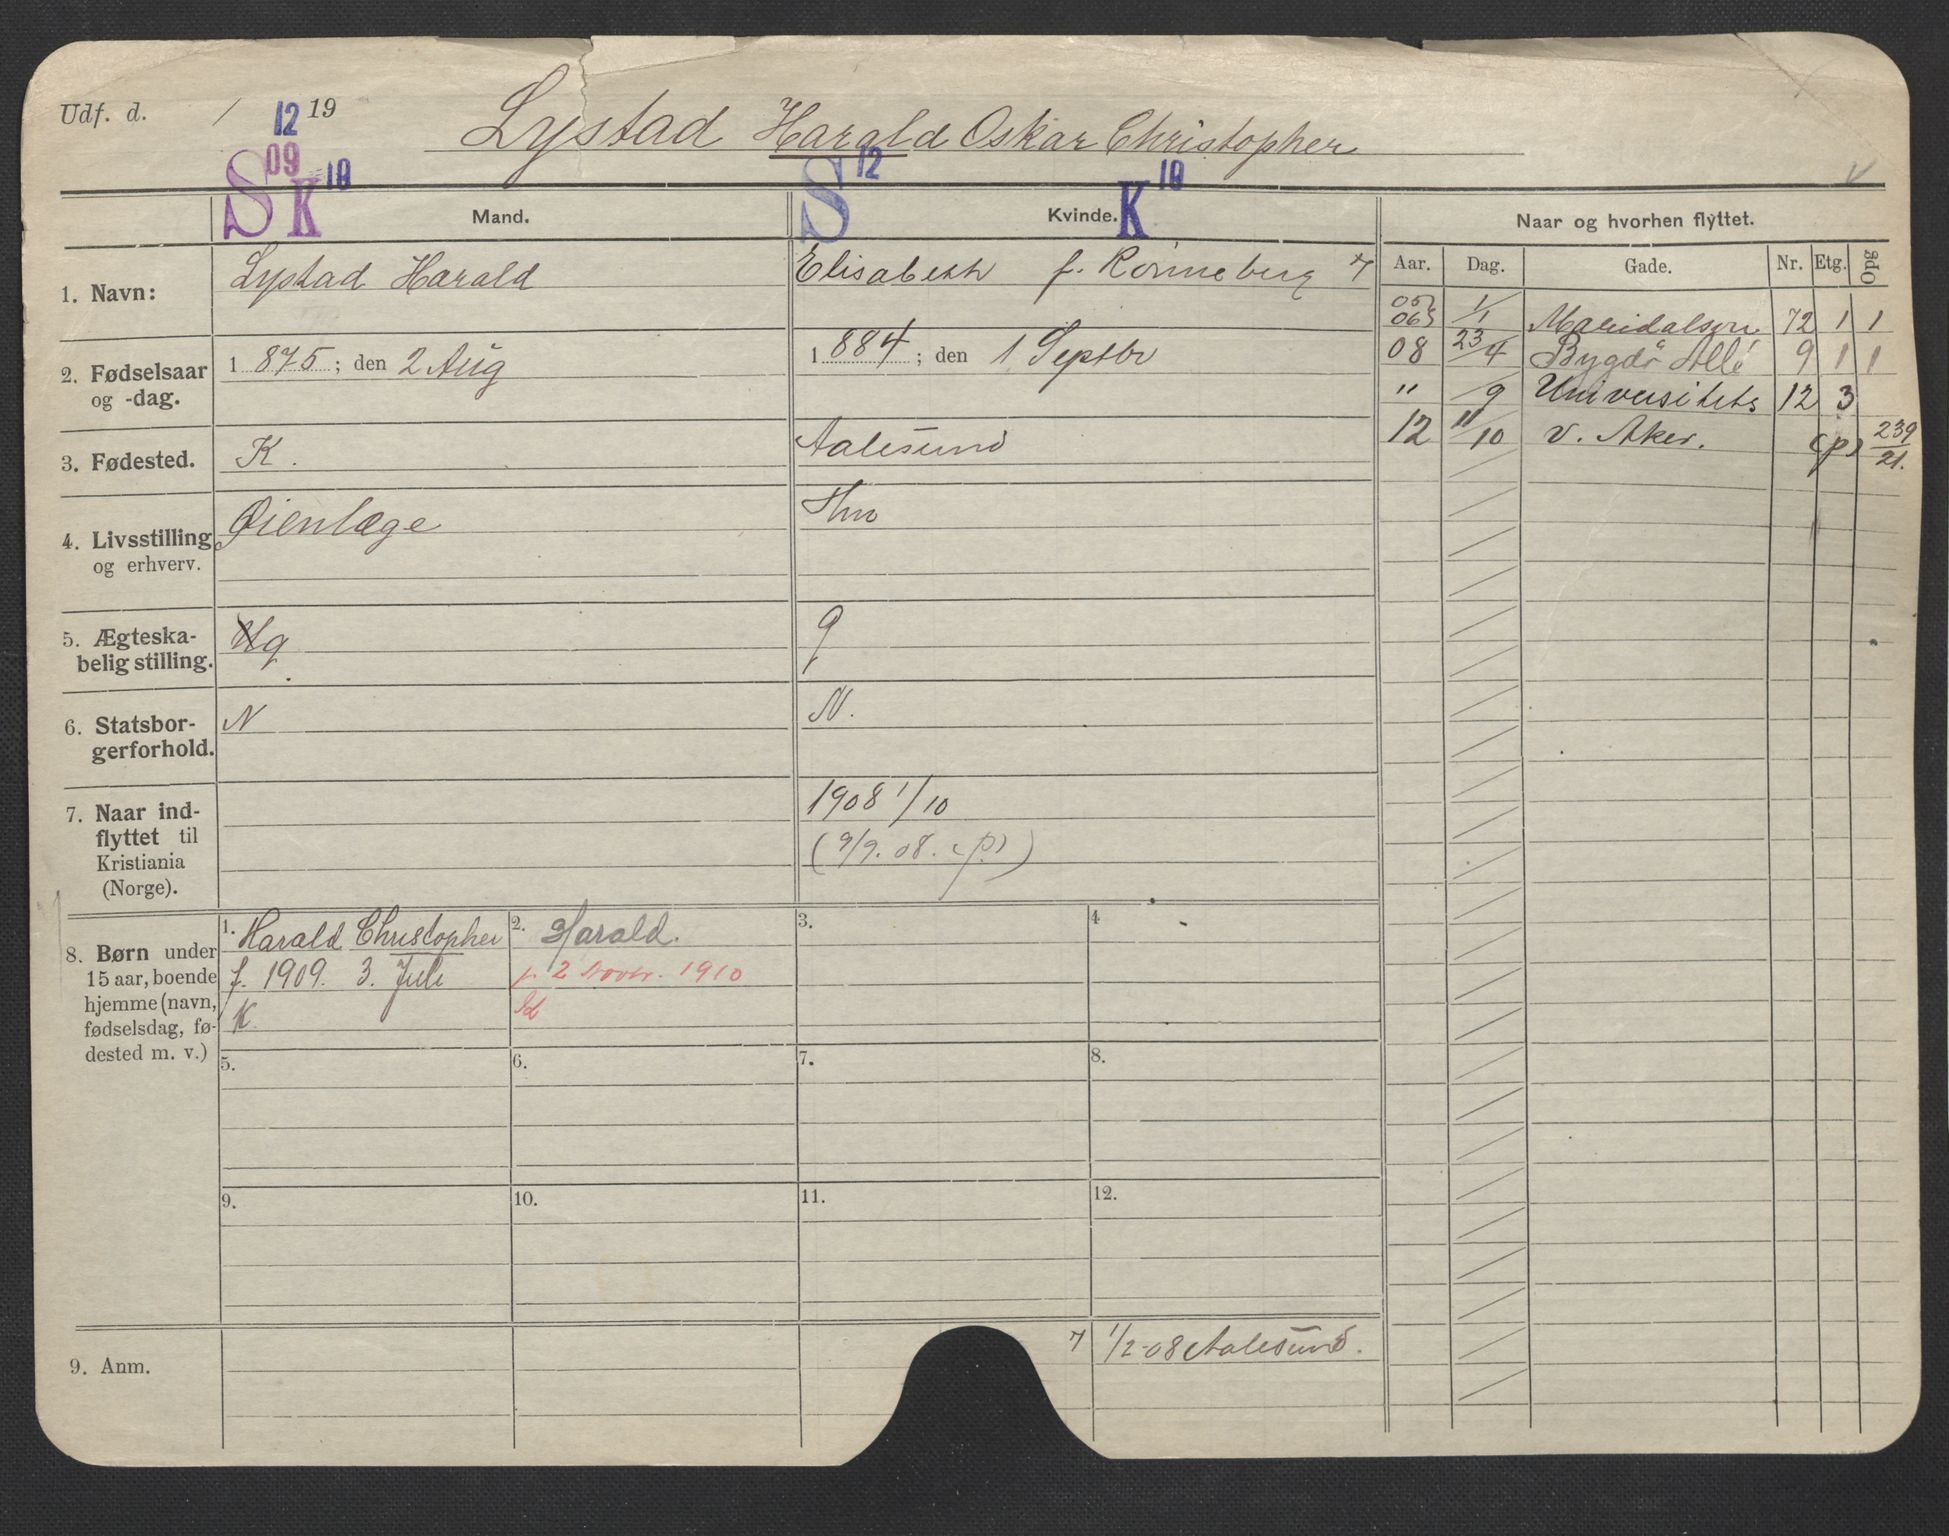 Udf. d. / 12 19
Lystad Harald Oskar Christopher
S 09 K 10
S 12
K 10
Mand.
Kvinde.
Naar og hvorhen flyttet.
Aar. Dag. Gade. Nr. Etg. Opg
1. Navn:
Lystad Harald
Elisabeth f. Rønneberg 7
2. Fødselsaar
og -dag.
1 875 ; den 2 Aug
1 884 ; den 1 Septbr
3. Fødested.
K.
Aalesund
4. Livsstilling
og erhverv.
Øienlæge
Hm
5. Ægteska-
belig stilling.
g
g
6. Statsbor-
gerforhold.
N
N.
7. Naar ind-
flyttet til
Kristiania
(Norge).
1908 1/10
(9/9. 08. (p))
05
06 1/1 Maridalsvn 72 1 1
08 23/4 Bygdø Allé 9 1 1
" /9 Universitets 12 3
12 11/10 v. Aker. (p) 239/21.
8. Børn under
15 aar, boende
hjemme (navn,
fødselsdag, fø-
dested m. v.)
1. Harald Christopher
f. 1909. 3. Juli
K
2. Harald.
f. 2 Novbr. 1910
3.
4
5.
6.
7.
8.
9.
10.
11.
12.
9. Anm.
7 1/2-08 Aalesund.